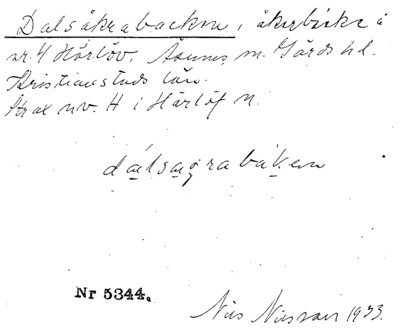 Dalsåkrabacken, åkerbacke å
nr. 4 Härlöv. Äsums sn. Gärds hd.
Kristianstads län.
Strax n.v. H i Härlöf N.
dalsagrabáken
Nr 5344.
Nils Nilsson 1933.